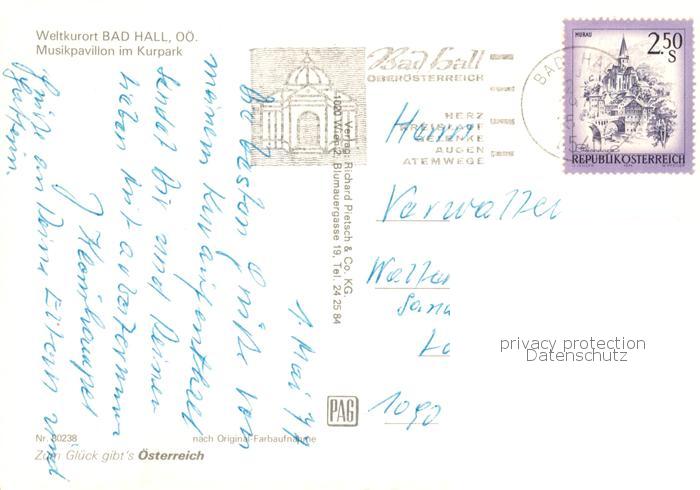 Weltkurort BAD HALL, OÖ.
Musikpavillon im Kurpark
Bad Hall
OBERÖSTERREICH
HERZ
KREISLAUF
GELENKE
AUGEN
ATEMWEGE
BAD HALL
MURAU
2.50
S
REPUBLIK ÖSTERREICH
1. Mai 77
Die besten Grüße von
meinem Kuraufenthalt
sendet Dir und Deiner
lieben
Grüße an Deine Eltern und
Verlag: Richard Pietsch & Co. KG.
1020 Wien 2, Blumauergasse 19, Tel. 24 25 84
Herrn
Verwalter
Walter
1090
privacy protection
Datenschutz
PAG
Nr. 80238
nach Original-Farbaufnahme
Zum Glück gibt's Österreich